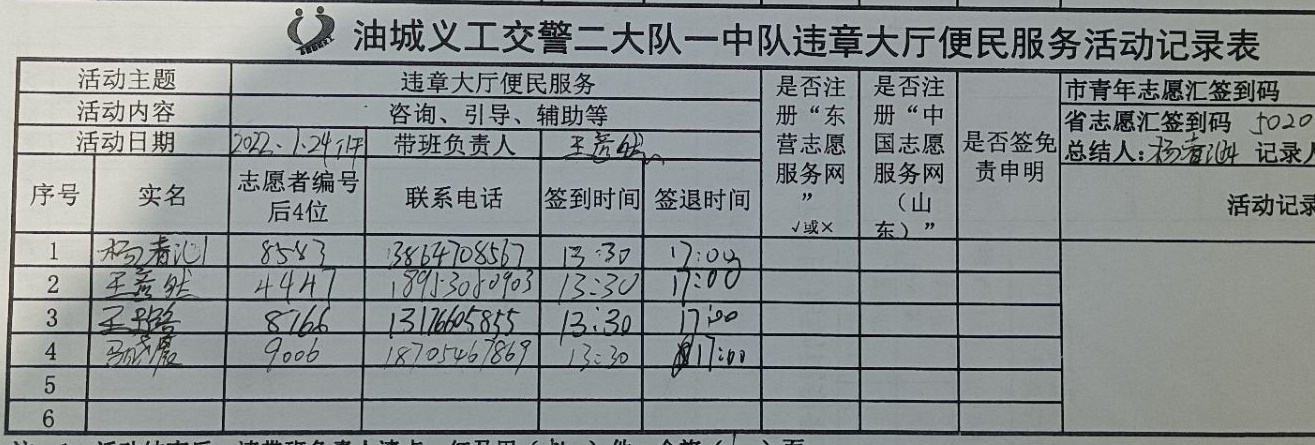 油城义工交警二大队一中队违章大厅便民服务活动记录表
活动主题 违章大厅便民服务 是否注册“东营志愿服务网” √或× 是否注册“中国志愿服务网（山东）” 是否签免责申明 市青年志愿汇签到码
活动内容 咨询、引导、辅助等 省志愿汇签到码 5020
活动日期 2022.1.24 带班负责人 王彦然 总结人: 记录人
序号 实名 志愿者编号后4位 联系电话 签到时间 签退时间 活动记录
1 8583 13864708567 13:30 17:00
2 王彦然 4447 18953080903 13:30 17:00
3 8766 13176605855 13:30 17:00
4 9006 18705467869 13:30 17:00
5
6